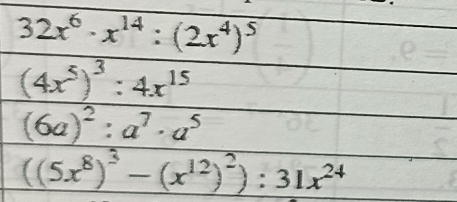 32x⁶ · x¹⁴ : (2x⁴)⁵
(4x⁵)³ : 4x¹⁵
(6a)² : a⁷ · a⁵
((5x⁸)³ − (x¹²)²) : 31x²⁴